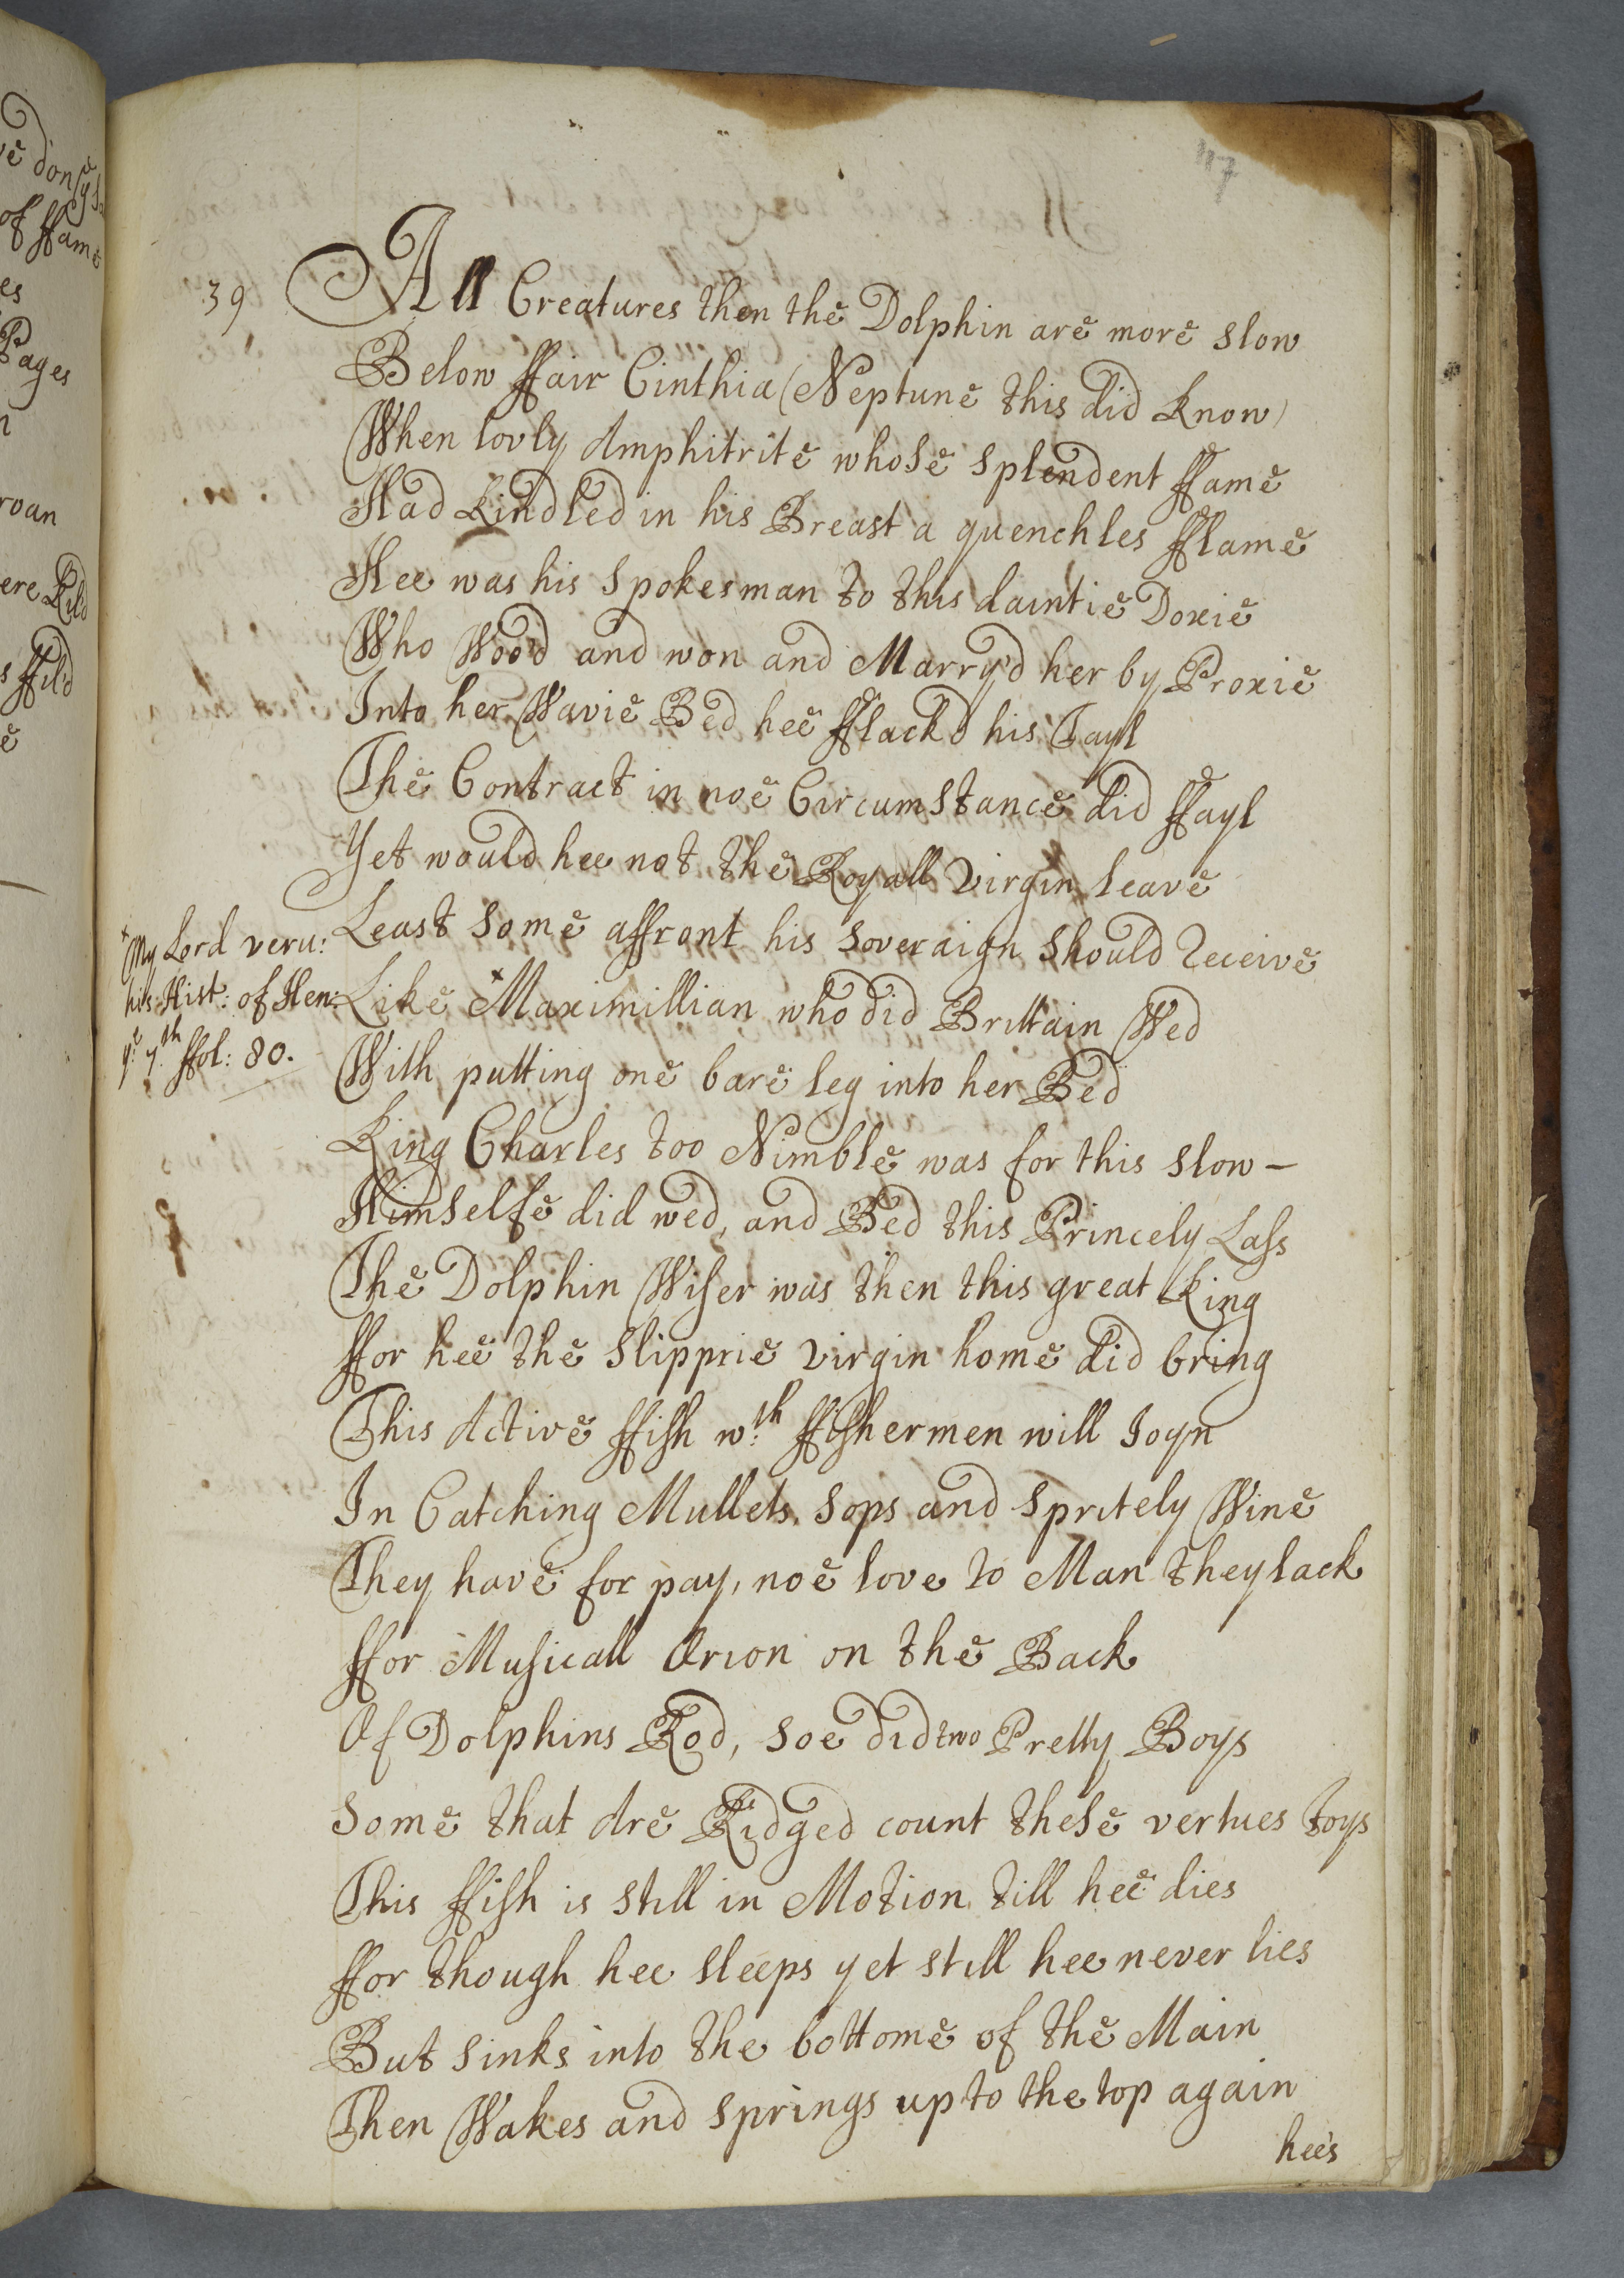 117
39 All Creatures then the Dolphin are more slow
Below ffair Cinthia (Neptune this did know)
When lovly Amphitrite whose splendent ffame
Had kindled in his Breast a quenchles fflame
Hee was his spokesman to this daintie Doxie
Who Woo'd and won and Marry'd her by Proxie
Into her Wavie Bed hee fflack'd his Tayl
The Contract in noe Circumstance did ffayl
Yet would hee not the Royall Virgin leave
Least some affront his soveraign should Receive
Like xMaximillian who did Brittain Wed
With putting one bare leg into her Bed
King Charles too Nimble was for this slow –
Himselfe did wed, and Bed this Princely Lass
The Dolphin Wiser was then this great King
ffor hee the slipprie virgin home did bring
This Active ffish wth: ffishermen will Joyn
In Catching Mullets, Sops and spritely Wine
They have for pay, noe love to Man they lack
ffor Musicall Orion on the Back
Of Dolphins Rod, soe did two Pretty Boys
Some that Are Ridged count these vertues toys
This ffish is still in Motion till hee dies
ffor though hee sleeps yet still hee never lies
But sinks into the bottome of the Main
Then Wakes and springs up to the top again
hee's
xMy Lord veru:
his Hist: of Hen:
ye 7th ffol: 80.
of ffame
es
Pages
ere Kild
s ffil'd